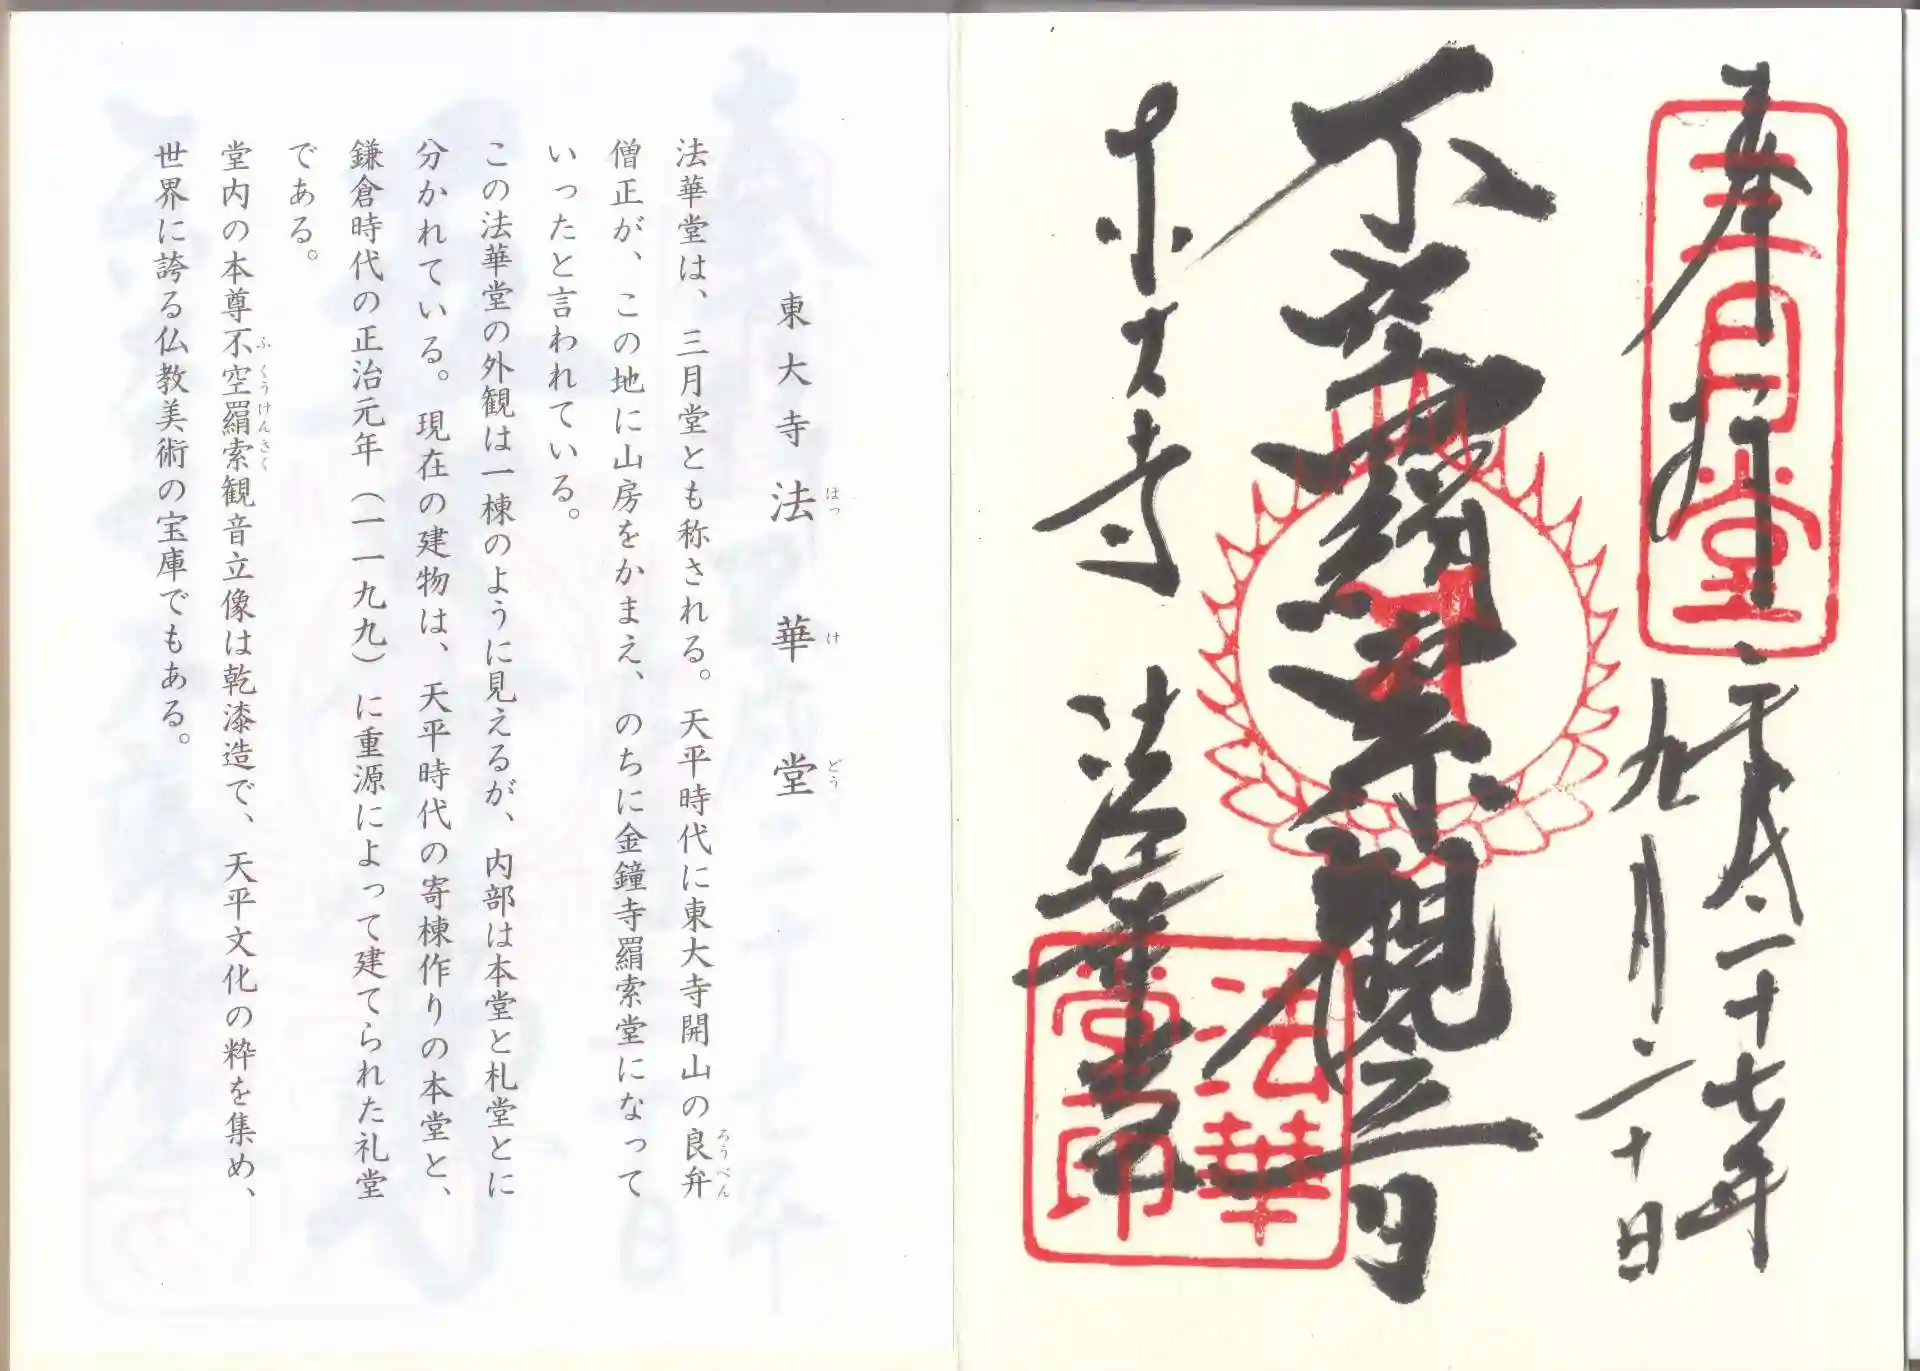 奉拝
平成二十七年
九月二十日
三月堂
不空羂索観音
東大寺
法華堂
法華
堂印
東大寺法華堂
ほっけどう
法華堂は、三月堂とも称される。天平時代に東大寺開山の良弁
ろうべん
僧正が、この地に山房をかまえ、のちに金鐘寺羂索堂になって
いったと言われている。
この法華堂の外観は一棟のように見えるが、内部は本堂と札堂とに
分かれている。現在の建物は、天平時代の寄棟作りの本堂と、
鎌倉時代の正治元年（一一九九）に重源によって建てられた礼堂
である。
堂内の本尊不空羂索観音立像は乾漆造で、天平文化の粋を集め、
ふくうけんさく
世界に誇る仏教美術の宝庫でもある。